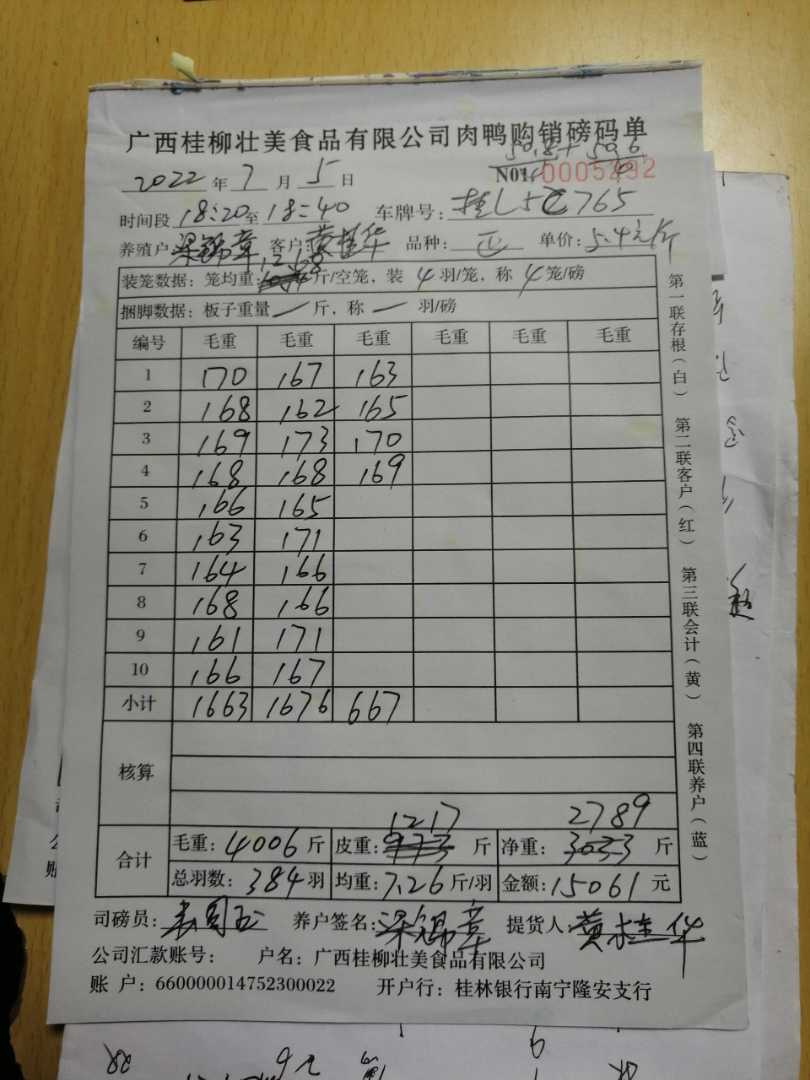 广西桂柳壮美食品有限公司肉鸭购销磅码单
50.8+50.6
NO1.0005292
2022年7月5日
时间段 18:20至18:40 车牌号: 桂L5C765
养殖户 梁锦章 客户: 黄桂华 品种: 正 单价: 5.4元/斤
12.68
装笼数据: 笼均重: 斤/空笼, 装 4 羽/笼, 称 4 笼/磅
捆脚数据: 板子重量 — 斤, 称 — 羽/磅
编号 毛重 毛重 毛重 毛重 毛重 毛重
1 170 167 163
2 168 162 165
3 169 173 170
4 168 168 169
5 166 165
6 163 171
7 164 166
8 168 166
9 161 171
10 166 167
小计 1663 1676 667
核算
1217 2789
合计 毛重: 4006 斤 皮重: 973 斤 净重: 3033 斤
总羽数: 384 羽 均重: 7.26 斤/羽 金额: 15061 元
司磅员: 养户签名: 梁锦章 提货人: 黄桂华
公司汇款账号: 户名: 广西桂柳壮美食品有限公司
账 户: 660000014752300022 开户行: 桂林银行南宁隆安支行
第一联存根(白) 第二联客户(红) 第三联会计(黄) 第四联养户(蓝)